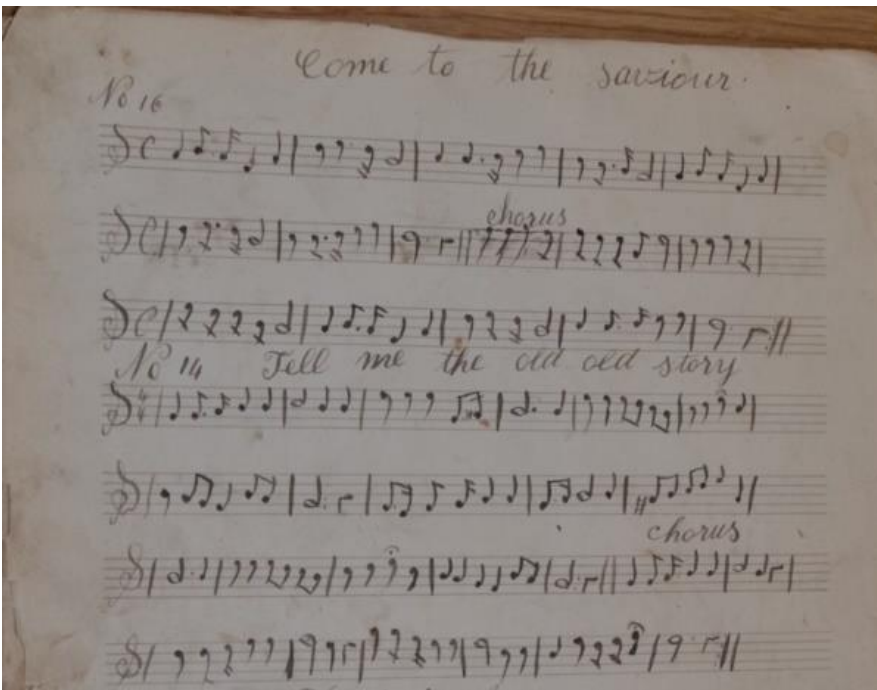 Come to the saviour.
No 16
chorus
No 14 Tell me the old old story
chorus